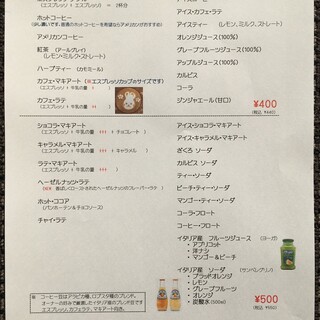 (エスプレッソ
2杯分
ホットコーヒー
アメリカンコーヒー
紅茶 (アールグレイ)
(レモン・ミルク・ストレート)
ハーブティー (カモミール)
カプチーノ・マキアート
カフェ・ラテ
エスプレッソ + 牛乳の量
ショコラ・マキアート
エスプレッソ + 牛乳の量 + チョコレート
キャラメル・マキアート
エスプレッソ + 牛乳の量 + キャラメル
ラテ・マキアート
エスプレッソ + 牛乳の量
ヘーゼルナッツ・ラテ
ホット・ココア
チャイ・ラテ
アイス・カフェ・ラテ
アイスティー (レモン,ミルク,ストレート)
オレンジジュース(100%)
グレープフルーツジュース(100%)
アップルジュース(100%)
カルピス
コーラ
ジンジャエール(甘口)
¥400
(税込 ¥440)
アイス・ショコラ・マキアート
アイス・キャラメル・マキアート
ざくろ ソーダ
カルピス ソーダ
ティー・ソーダ
ピーチ・ティー・ソーダ
マンゴー・ティー・ソーダ
コーラ・フロート
コーヒー・フロート
イタリア産 フルーツジュース (ヨーガ)
• アプリコット
• 洋ナシ
• マンゴー&ピーチ
イタリア産 ソーダ (サンペレグリノ)
• ブラッドオレンジ
• レモン
• グレープフルーツ
• オレンジ
• 炭酸水(500ml)
¥500
(税込 ¥550)
※ コーヒー豆はアラビカ種、ロブスタ種のブレンド。
オーナーの好みで厳選したイタリア産ブレンド豆です
エスプレッソ,カフェラテ,マキアート向き。